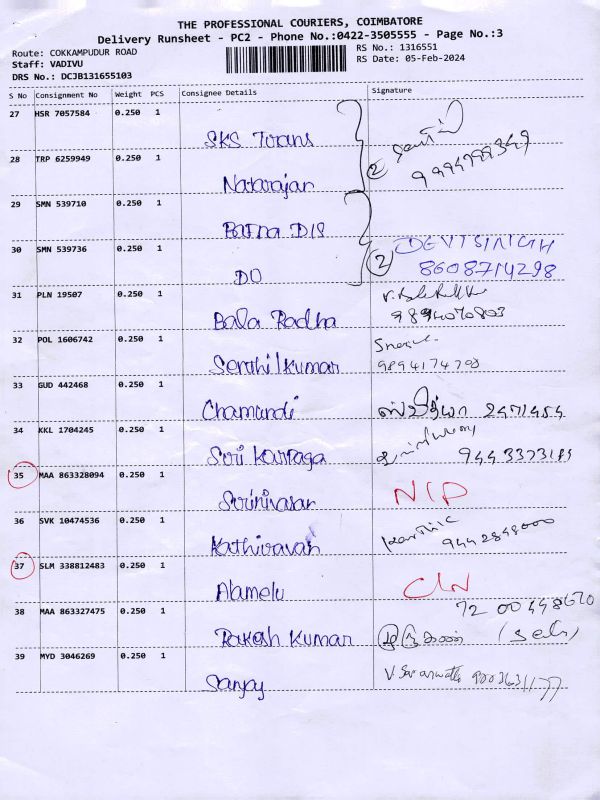 THE PROFESSIONAL COURIERS, COIMBATORE
Delivery Runsheet - PC2 - Phone No.:0422-3505555 - Page No.:3
Route: COKKAMPUDUR ROAD
RS No.: 1316551
Staff: VADIVU
RS Date: 05-Feb-2024
DRS No.: DCJB131655103
S No Consignment No Weight PCS Consignee Details Signature
27 HSR 7057584 0.250 1
SKS Trans
28 TRP 6259949 0.250 1
2
Natarajan
29 SMN 539710 0.250 1
Batna DIS
30 SMN 539736 0.250 1
2 DEVISINGH
DO 8608714298
31 PLN 19507 0.250 1
Bala Radha 9894070803
32 POL 1606742 0.250 1
Senthil kumar 9894174798
33 GUD 442468 0.250 1
Chamandi 2471454
34 KKL 1704245 0.250 1
Sri Karpaga
35 MAA 863328094 0.250 1
Srinivasan N/P
36 SVK 10474536 0.250 1
Karthik
Kathiravan 9442848000
37 SLM 338812483 0.250 1
Alamelu C/N
38 MAA 863327475 0.250 1
72 00 448670
Rakesh Kumar (self)
39 MYD 3046269 0.250 1
Sanjay V Saraswathi